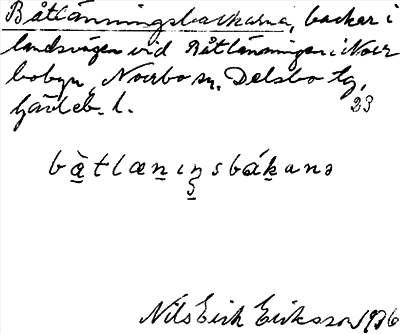 Båtlänningsbackarna, backar i
landsvägen vid Båtlänningen i Norr
bobyn, Norrbo sn, Delsbo tg,
Gävleb. l. 23
bàtlæniŋsbákanə
Nils Erik Eriksson 1936